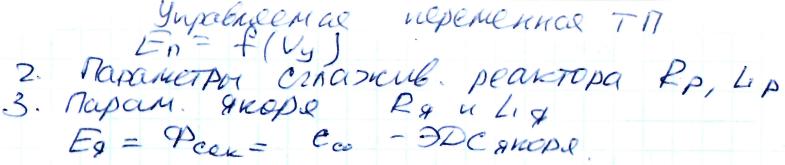 Управляемая переменная ТП
Eп = f(Uу)
2. Параметры сглажив. реактора Rр, Lр
3. Парам. якоря Rя и Lя
Eя = - ЭДС якоря